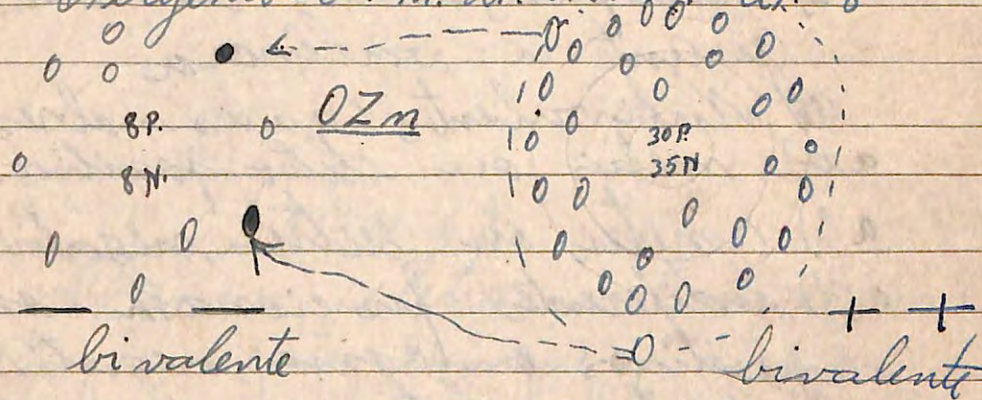 OZn
8P.
8N.
30P.
35N
— —
+ +
bivalente
bivalente